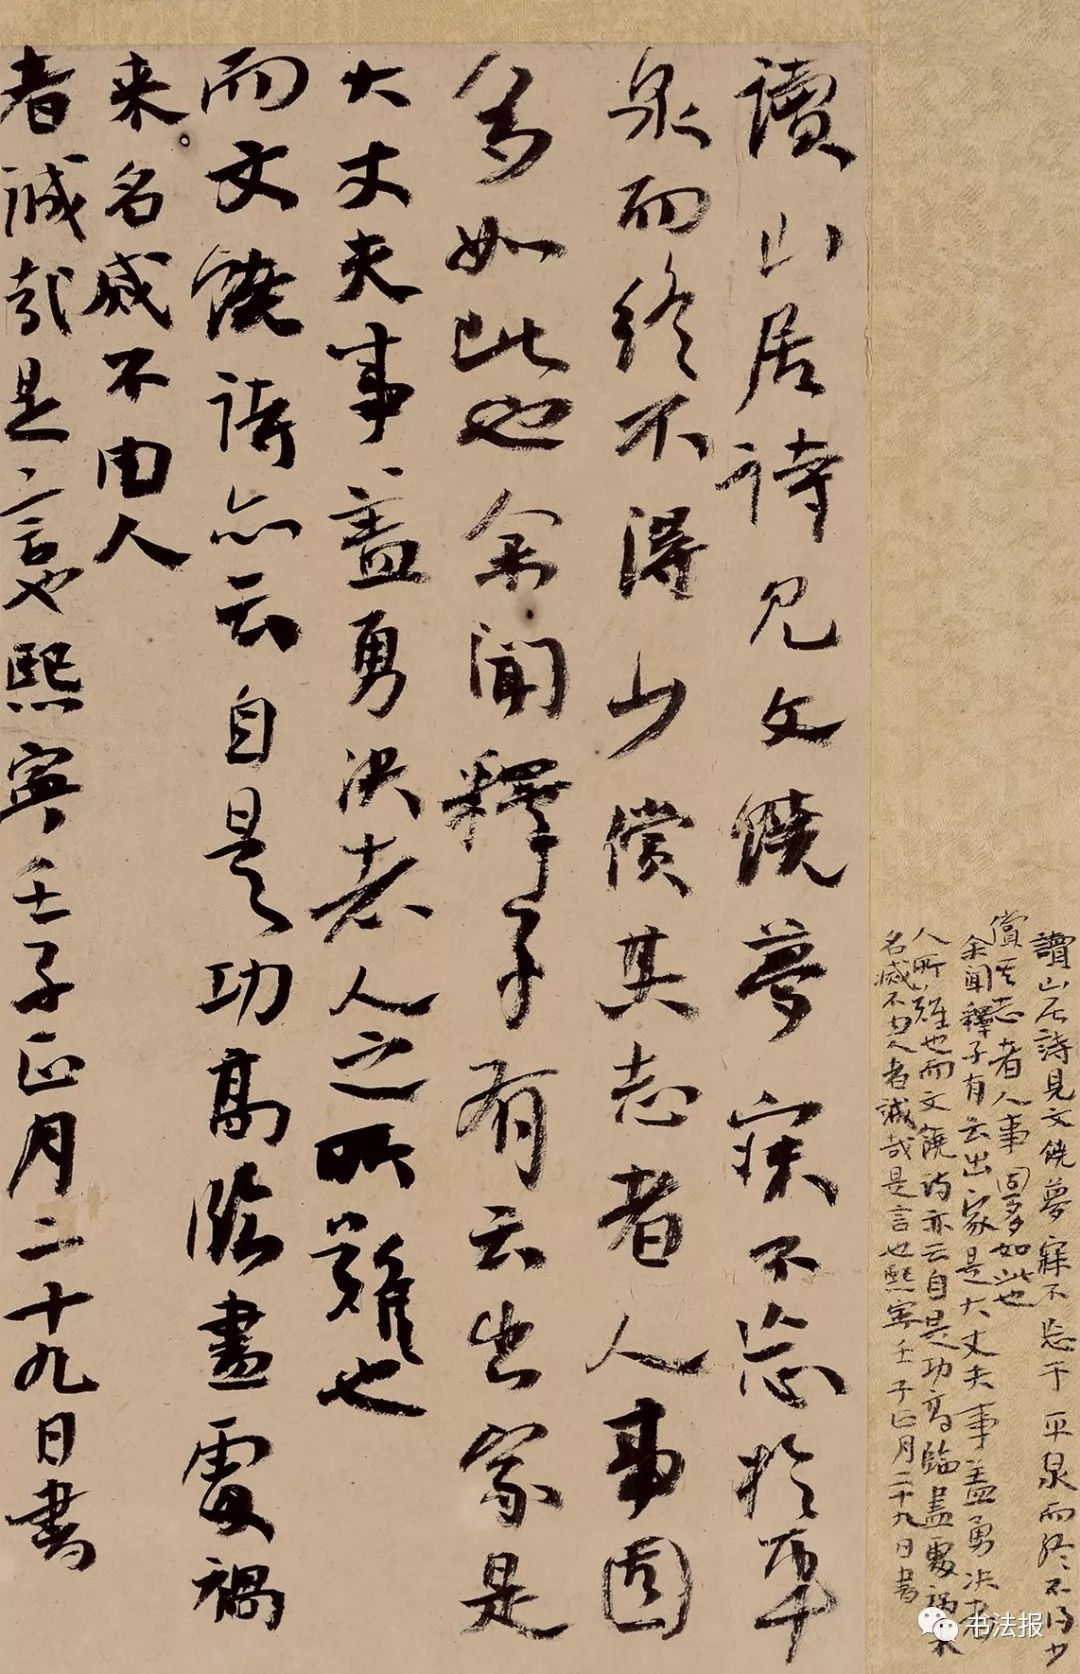 讀山居詩見文饒夢寐不忘於平
泉而終不得少償其志者人事固
多如此也余聞釋子有云出家是
大丈夫事蓋勇決者人之所難也
而文饒詩亦云自是功高臨盡處禍
来名滅不由人
者誠哉是言也熙寧壬子正月二十九日書
讀山居詩見文饒夢寐不忘于平泉而終不得少
償其志者人事固多如此也
余聞釋子有云出家是大丈夫事蓋勇決者
人所難也而文饒詩亦云自是功高臨盡處禍来
名滅不由人者誠哉是言也熙寧壬子正月二十九日書
书法报